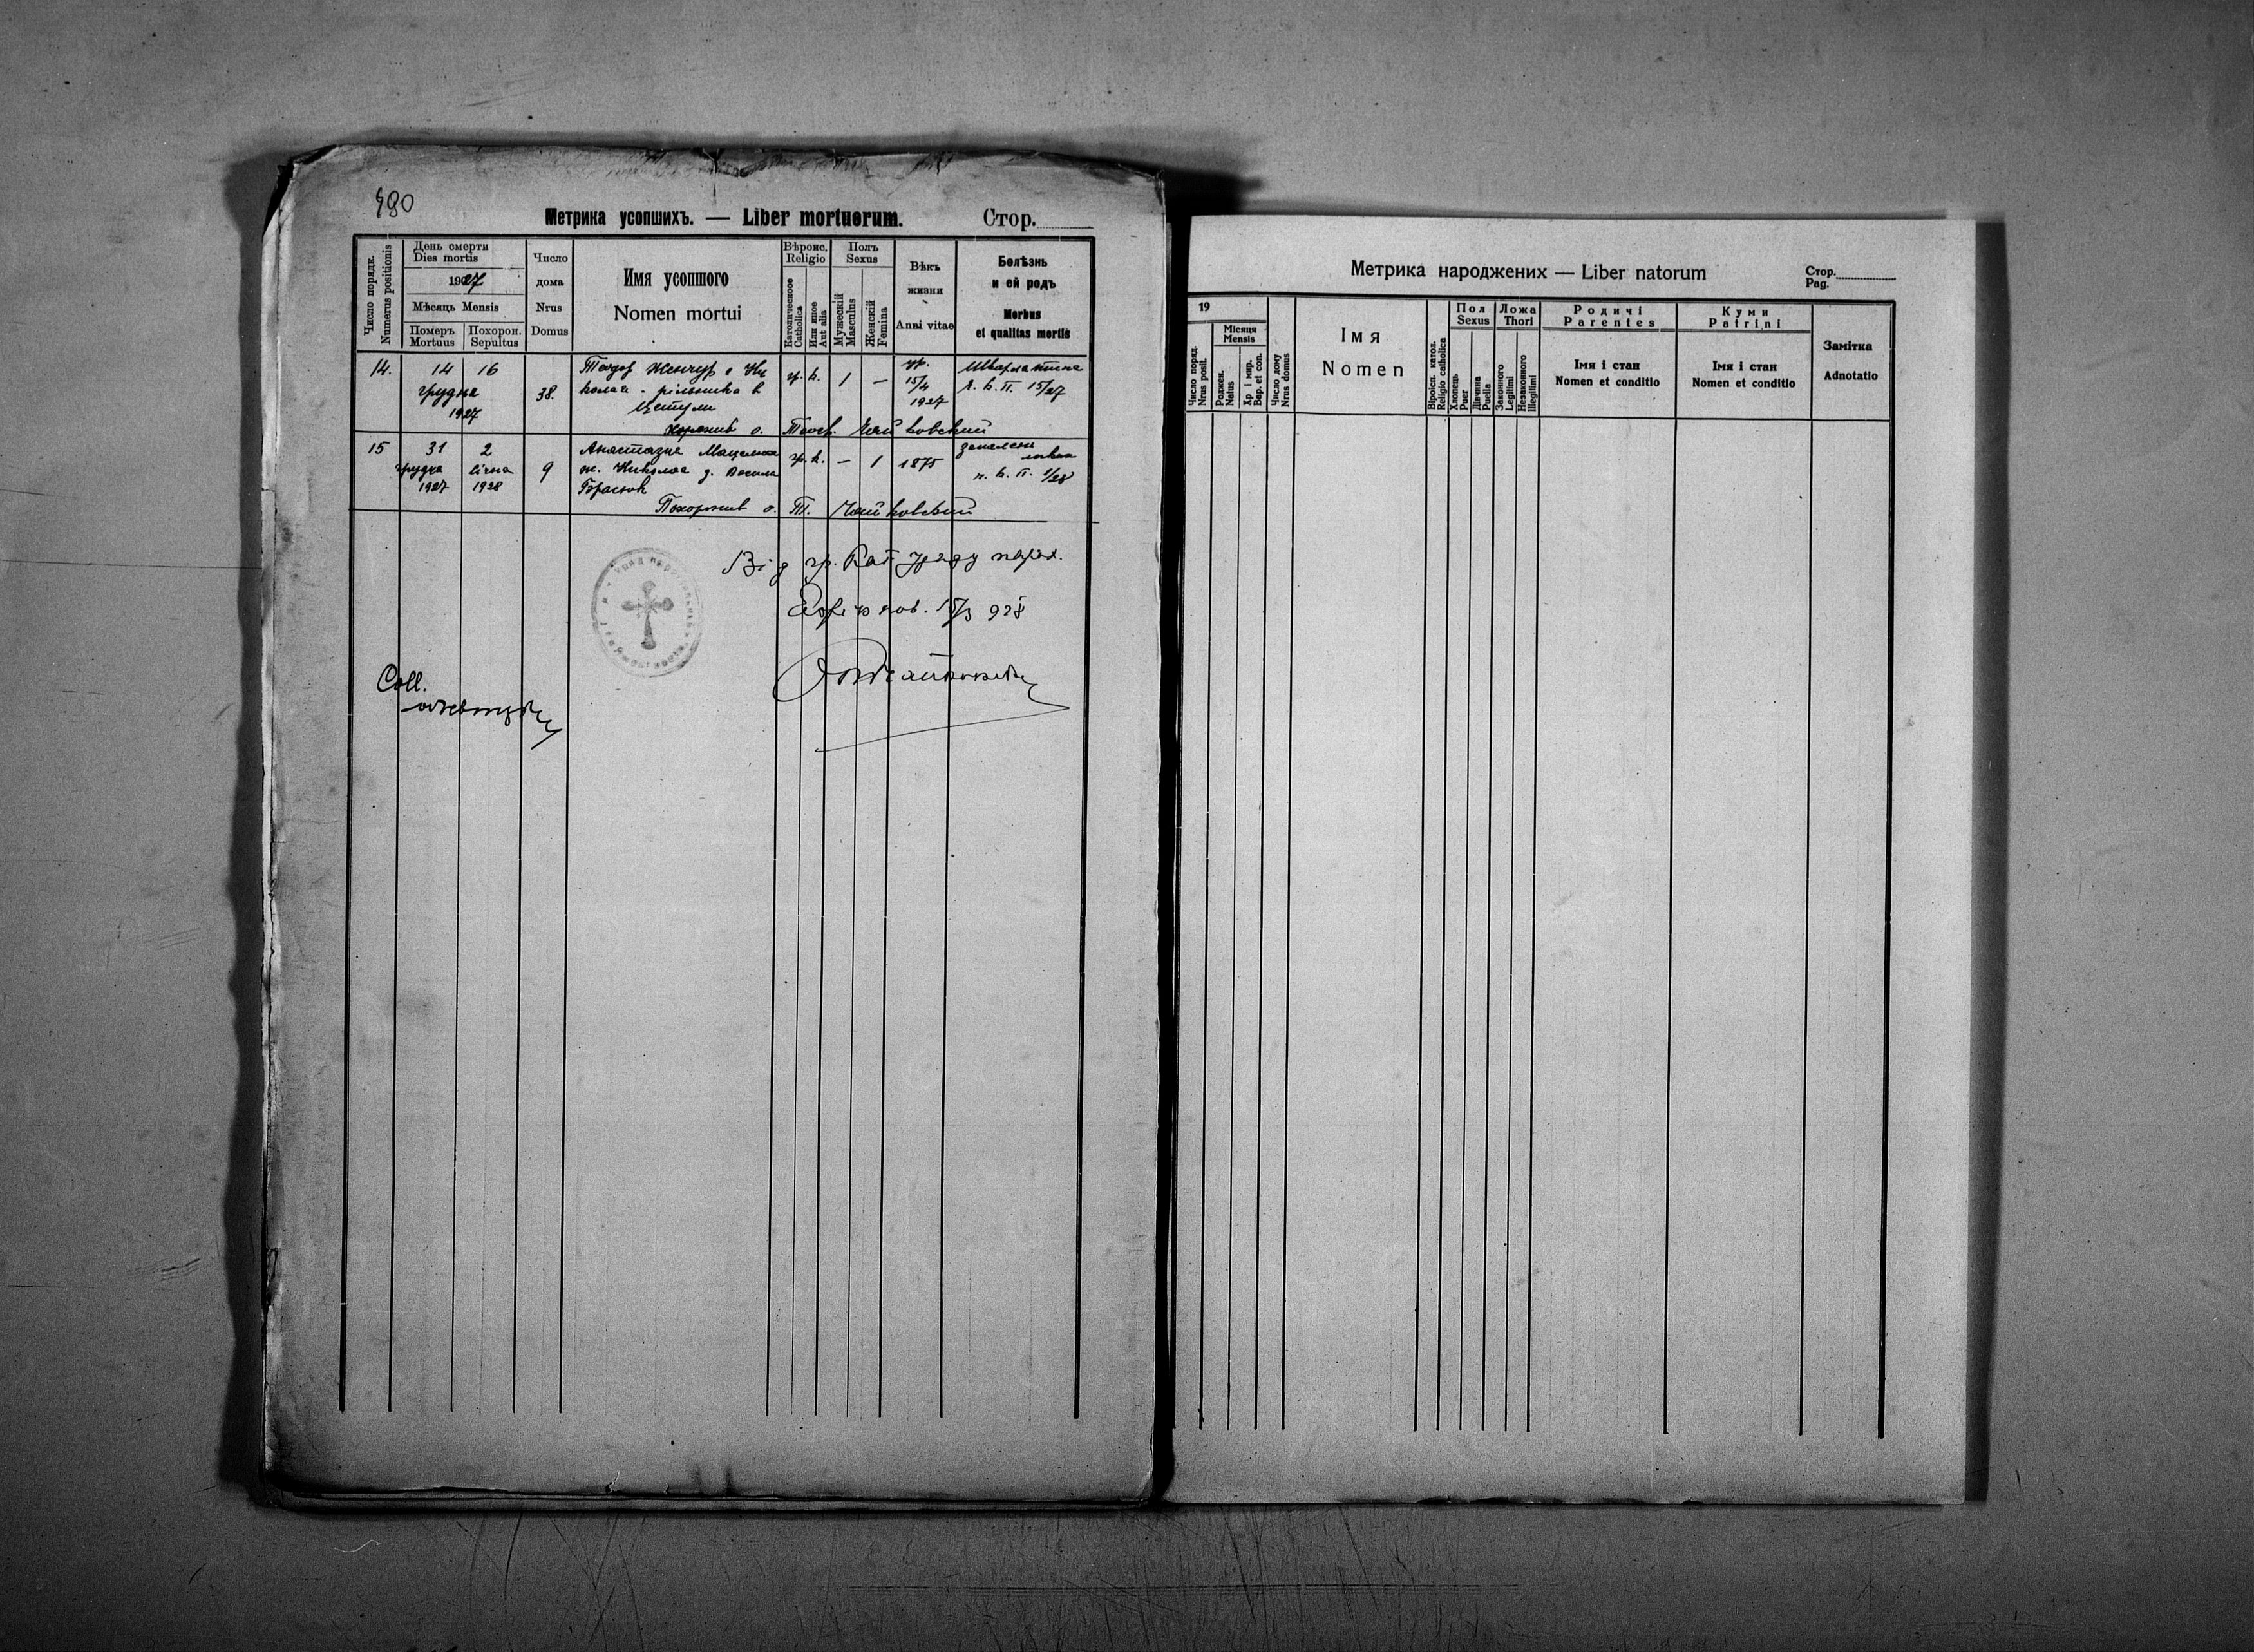 490
Метрика усопшихъ. — Liber mortuorum. Стор.
Число порядк.
Numerus positionis
День смерти
Dies mortis
1927
Мѣсяць Mensis
Померъ
Mortuus
Похорон.
Sepultus
Число
дома
Nrus
Domus
Имя усопшого
Nomen mortui
Вѣроис.
Religio
Католическоое
Catholica
Или иное
Aut alia
Полъ
Sexus
Мужескій
Masculus
Женскій
Femina
Вѣкъ
жизни
Anni vitae
Болѣзнь
и ей родъ
Morbus
et qualitas mortis
14. 14 16 грудня 1927
38.
Теодор
колая - рільника в
гр. к. 1 —
15/4
1927
Шкарлятина
15/27
Теоф. Чайковский
15 31 2
грудня січня
1927 1928
9
Анастазия
ж. Николая д. Василя
гр. к. — 1 1875
запалення
п. к. п. 1/28
Похоронив о. Т. Чайковский
Від гр. кат уряду парох.
15/3 928
Coll.
Метрика народжених — Liber natorum
Стор.
Pag.
19
Число поряд.
Nrus posit.
Місяця
Mensis
Роджен.
Natus
Хр. і мир.
Bap. et con.
Число дому
Nrus domus
Імя
Nomen
Віроісп. катол.
Religio catholica
Пол
Sexus
Хлопець
Puer
Дівчина
Puella
Ложа
Thori
Законного
Legitimi
Незаконного
Illegitimi
Родичі
Parentes
Імя і стан
Nomen et conditio
Куми
Patrini
Імя і стан
Nomen et conditio
Замітка
Adnotatio